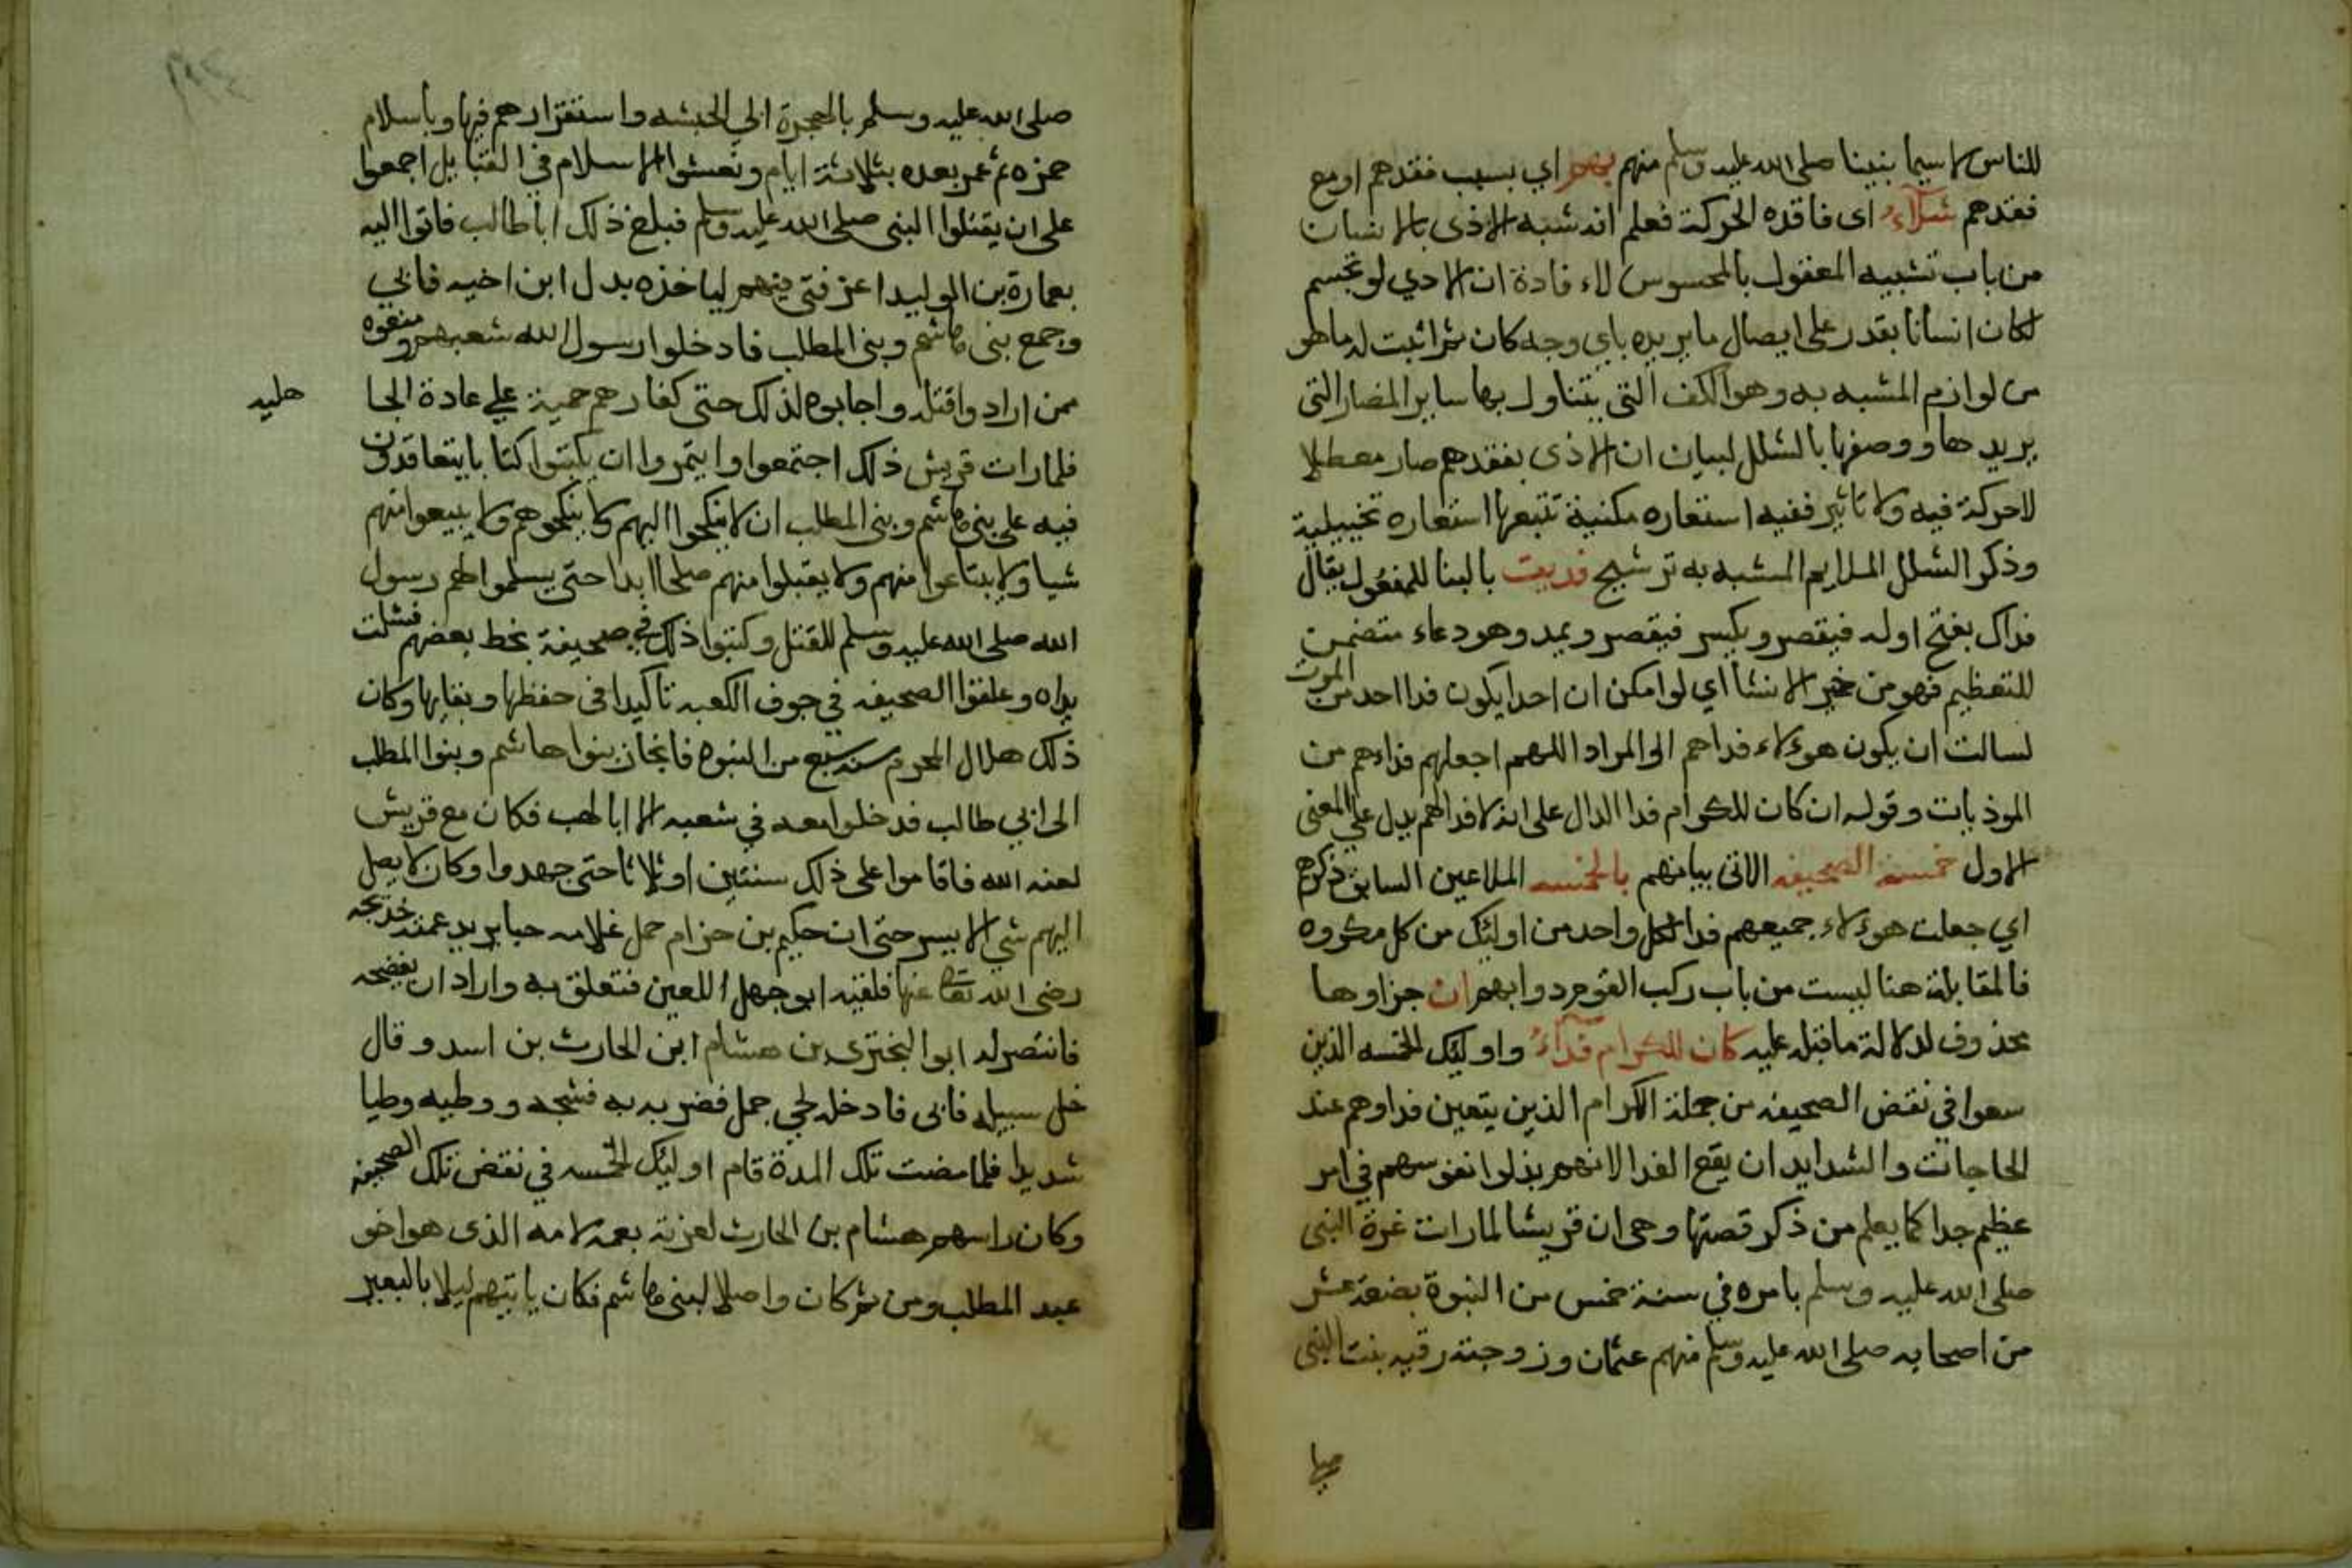 للناس لا سيما بنبينا صلى الله عليه وسلم منهم بهم اي بسبب فقدهم او مع
فقدهم شلاء اى فاقده الحركة فعلم انه شبه الاذى بالانسان
من باب تشبيه المعقول بالمحسوس لاء فادة ان الاذي لو تجسم
لكان انسانا يقدر على ايصال ما يريده باي وجه كان ثم اثبت له ما هو
من لوازم المشبه به وهو الكف التى يتناول بها ساير المضار التى
يريدها ووصفها بالشلل لبيان ان الاذى بفقدهم صار معطلا
لا حركة فيه ولا تاثير ففيه استعاره مكنية تتبعها استعاره تخييلية
وذكر الشلل الملايم المشبه به ترشيح فديت بالبنا للمفعول يقال
فداك بفتح اوله فيقصر وبكسر فيقصر ويمد وهو دعاء متضمن
للتعظيم فهو من خبر الانشا اي لو امكن ان احدا يكون فدا احد من الموت
لسالت ان يكون هوءلاء فداهم او المراد اللهم اجعلهم فداءهم من
الموذيات وقوله ان كان للكرام فدا الدال على انه لا فدا لهم يدل علي المعنى
الاول خمسة الصحيفه الاتى بيانهم بالخمسه الملاعين السابق ذكرهم
اي جعلت هوءلاء جميعهم فدا لكل واحد من اوليك من كل مكروه
فالمقابلة هنا ليست من باب ركب القوم دوابهم ان جزاوها
محذوف لدلالة ما قبله عليه كان للكرام فداء واوليك الخمسه الذين
سعوا في نقض الصحيفه من جملة الكرام الذين يتعين فداوهم عند
الحاجات والشدايد ان يقع الفدا لانهم بذلوا نفوسهم في امر
عظيم جدا كما يعلم من ذكر قصتها وهى ان قريشا لما رات عزة النبى
صلى الله عليه وسلم بامره في سنة خمس من النبوة بضعة عشر
من اصحابه صلى الله عليه وسلم منهم عثمان وزوجته رقيه بنت النبى
صلى الله عليه وسلم بالهجرة الى الحبشه واستقرارهم فيها وباسلام
حمزه ثم عمر بعده بثلاثة ايام وفشوا الاسلام في القبايل اجمعوا
على ان يقتلوا النبى صلى الله عليه وسلم فبلغ ذلك ابا طالب فاتوا اليه
بعمارة بن الوليد اعز فتى فيهم لياخذه بدل ابن اخيه فابي
وجمع بنى هاشم وبنى المطلب فادخلوا رسول الله شعبهم ومنعوه
ممن ارادوا قتله واجابوه لذلك حتى كفارهم حمية علي عادة الجا
هليه
فلما رات قريش ذلك اجتمعوا وايتمروا ان يكتبوا كتابا يتعاقدون
فيه على بنى هاشم وبنى المطلب ان لا ينكحوا اليهم ولا ينكحوهم ولا يبيعوا منهم
شيا ولا يبتاعوا منهم ولا يقبلوا منهم صلحا ابدا حتى يسلموا لهم رسول
الله صلى الله عليه وسلم للقتل وكتبوا ذلك في صحيفة بخط بعضهم فشلت
يداه وعلقوا الصحيفه في جوف الكعبه تاكيدا فى حفظها وبقايها وكان
ذلك هلال المحرم سنة سبع من النبوه فانحاز بنوا هاشم وبنوا المطلب
الى ابي طالب فدخلوا معه في شعبه الا ابا لهب فكان مع قريش
لعنه الله فاقاموا على ذلك سنتين او ثلاثا حتى جهدوا وكان لا يصل
اليهم شي الا بيسر حتى ان حكيم بن حزام حمل غلامه حبا يريد عمته خديجه
رضى الله تعالى عنها فلقيه ابو جهل اللعين فتعلق به واراد ان يفضحه
فانتصر له ابوا البختري بن هشام ابن الحارث بن اسد وقال
خل سبيله فابى فادخله لحي جمل فضربه به فشجه ووطيه وطيا
شديدا فلما مضت تلك المدة قام اوليك الخمسه في نقض تلك الصحيفه
وكان راسهم هشام بن الحارث لعزته بعمه لامه الذى هو اخو
عبد المطلب ومن ثم كان واصلا لبنى هاشم فكان ياتيهم ليلا بالبعير